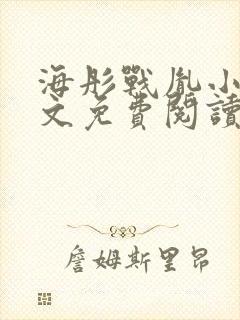 海彤戰胤小
文免費閱讀
詹姆斯里昂